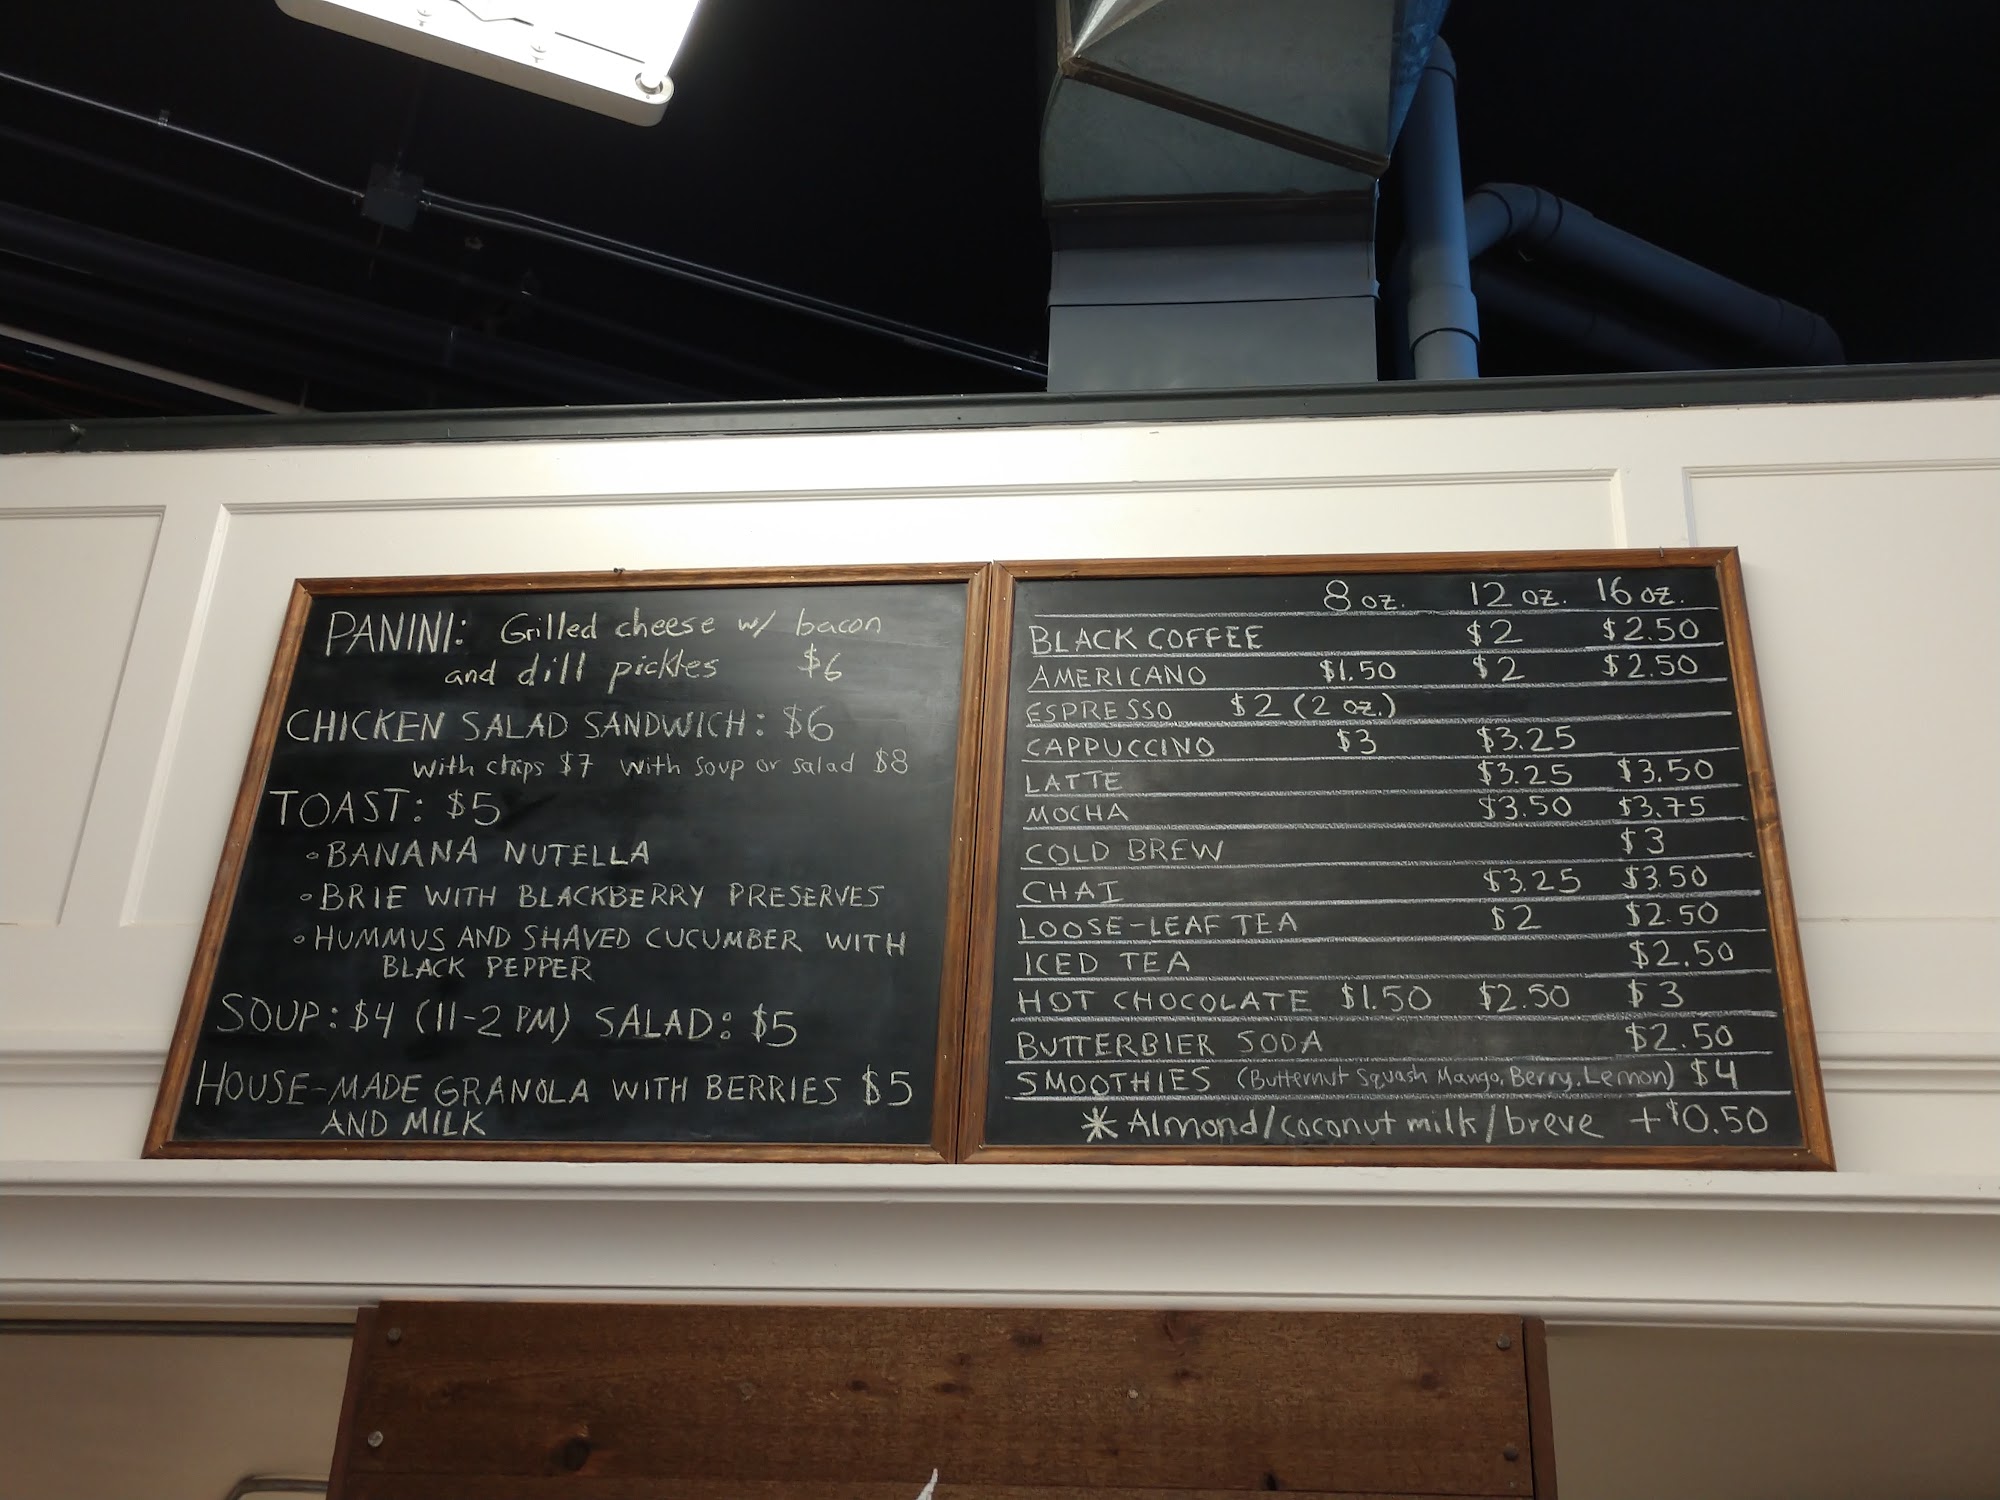 PANINI: Grilled cheese w/ bacon
and dill pickles $6
CHICKEN SALAD SANDWICH: $6
with chips $7 with soup or salad $8
TOAST: $5
◦ BANANA NUTELLA
◦ BRIE WITH BLACKBERRY PRESERVES
◦ HUMMUS AND SHAVED CUCUMBER WITH
BLACK PEPPER
SOUP: $4 (11-2 PM) SALAD: $5
HOUSE-MADE GRANOLA WITH BERRIES $5
AND MILK
8 oz. 12 oz. 16 oz.
BLACK COFFEE $2 $2.50
AMERICANO $1.50 $2 $2.50
ESPRESSO $2 (2 oz.)
CAPPUCCINO $3 $3.25
LATTE $3.25 $3.50
MOCHA $3.50 $3.75
COLD BREW $3
CHAI $3.25 $3.50
LOOSE-LEAF TEA $2 $2.50
ICED TEA $2.50
HOT CHOCOLATE $1.50 $2.50 $3
BUTTERBIER SODA $2.50
SMOOTHIES (Butternut Squash Mango, Berry, Lemon) $4
* Almond/coconut milk/breve +$0.50